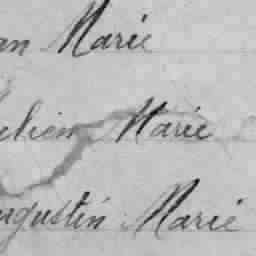 an Marie
elien Marie
ugustin Marie